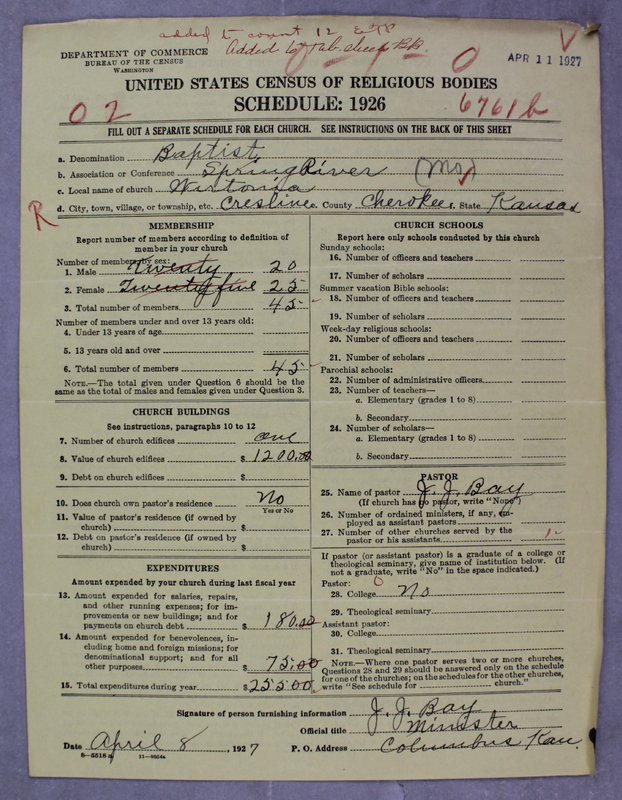 added to count 12 E&P
Added to Tab. sheet BB.
DEPARTMENT OF COMMERCE
BUREAU OF THE CENSUS
WASHINGTON
APR 11 1927
UNITED STATES CENSUS OF RELIGIOUS BODIES
SCHEDULE: 1926
0 2
6761b
FILL OUT A SEPARATE SCHEDULE FOR EACH CHURCH. SEE INSTRUCTIONS ON THE BACK OF THIS SHEET
a. Denomination Baptist
b. Association or Conference Spring River (Mo)
c. Local name of church Wirtonia
d. City, town, village, or township, etc. Crestline. County Cherokee. State Kansas
R
MEMBERSHIP
Report number of members according to definition of
member in your church
Number of members by sex:
1. Male Twenty 20
2. Female Twenty five 25
3. Total number of members 45
Number of members under and over 13 years old:
4. Under 13 years of age
5. 13 years old and over
6. Total number of members 45
NOTE.—The total given under Question 6 should be the
same as the total of males and females given under Question 3.
CHURCH BUILDINGS
See instructions, paragraphs 10 to 12
7. Number of church edifices one
8. Value of church edifices $ 1200.00
9. Debt on church edifices $
10. Does church own pastor's residence No
Yes or No
11. Value of pastor's residence (if owned by
church) $
12. Debt on pastor's residence (if owned by
church) $
EXPENDITURES
Amount expended by your church during last fiscal year
13. Amount expended for salaries, repairs,
and other running expenses; for im-
provements or new buildings; and for
payments on church debt $ 180.00
14. Amount expended for benevolences, in-
cluding home and foreign missions; for
denominational support; and for all
other purposes $ 75.00
15. Total expenditures during year $ 255.00
CHURCH SCHOOLS
Report here only schools conducted by this church
Sunday schools:
16. Number of officers and teachers
17. Number of scholars
Summer vacation Bible schools:
18. Number of officers and teachers
19. Number of scholars
Week-day religious schools:
20. Number of officers and teachers
21. Number of scholars
Parochial schools:
22. Number of administrative officers
23. Number of teachers—
a. Elementary (grades 1 to 8)
b. Secondary
24. Number of scholars—
a. Elementary (grades 1 to 8)
b. Secondary
PASTOR
25. Name of pastor J. J. Bay
(If church has no pastor, write "None")
26. Number of ordained ministers, if any, em-
ployed as assistant pastors
27. Number of other churches served by the
pastor or his assistants 1
If pastor (or assistant pastor) is a graduate of a college or
theological seminary, give name of institution below. (If
not a graduate, write "No" in the space indicated.)
Pastor:
28. College No
29. Theological seminary
Assistant pastor:
30. College
31. Theological seminary
NOTE.—Where one pastor serves two or more churches,
Questions 28 and 29 should be answered only on the schedule
for one of the churches; on the schedules for the other churches,
write "See schedule for church."
Signature of person furnishing information J. J. Bay
Official title Minister
Date April 8, 1927 P. O. Address Columbus Kan.
8-5518 a 11-9554a